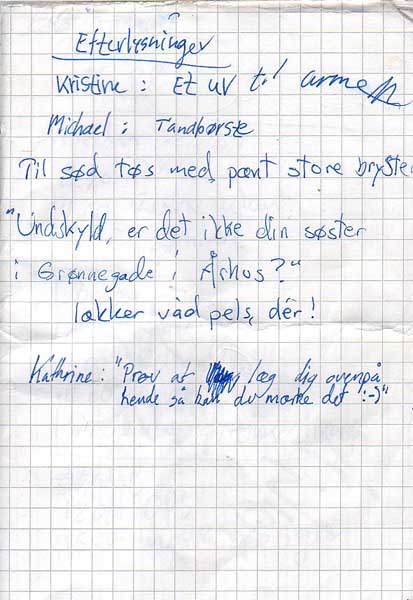 Efterlysninger
Kristine: Et ur til armen
Michael: Tandbørste
Til sød tøs med pænt store bryster
"Undskyld, er det ikke din søster
i Grønnegade i Århus?"
lækker våd pels, dér!
Kathrine: "Prøv at læg dig ovenpå
hende så kan du mærke det :-)"